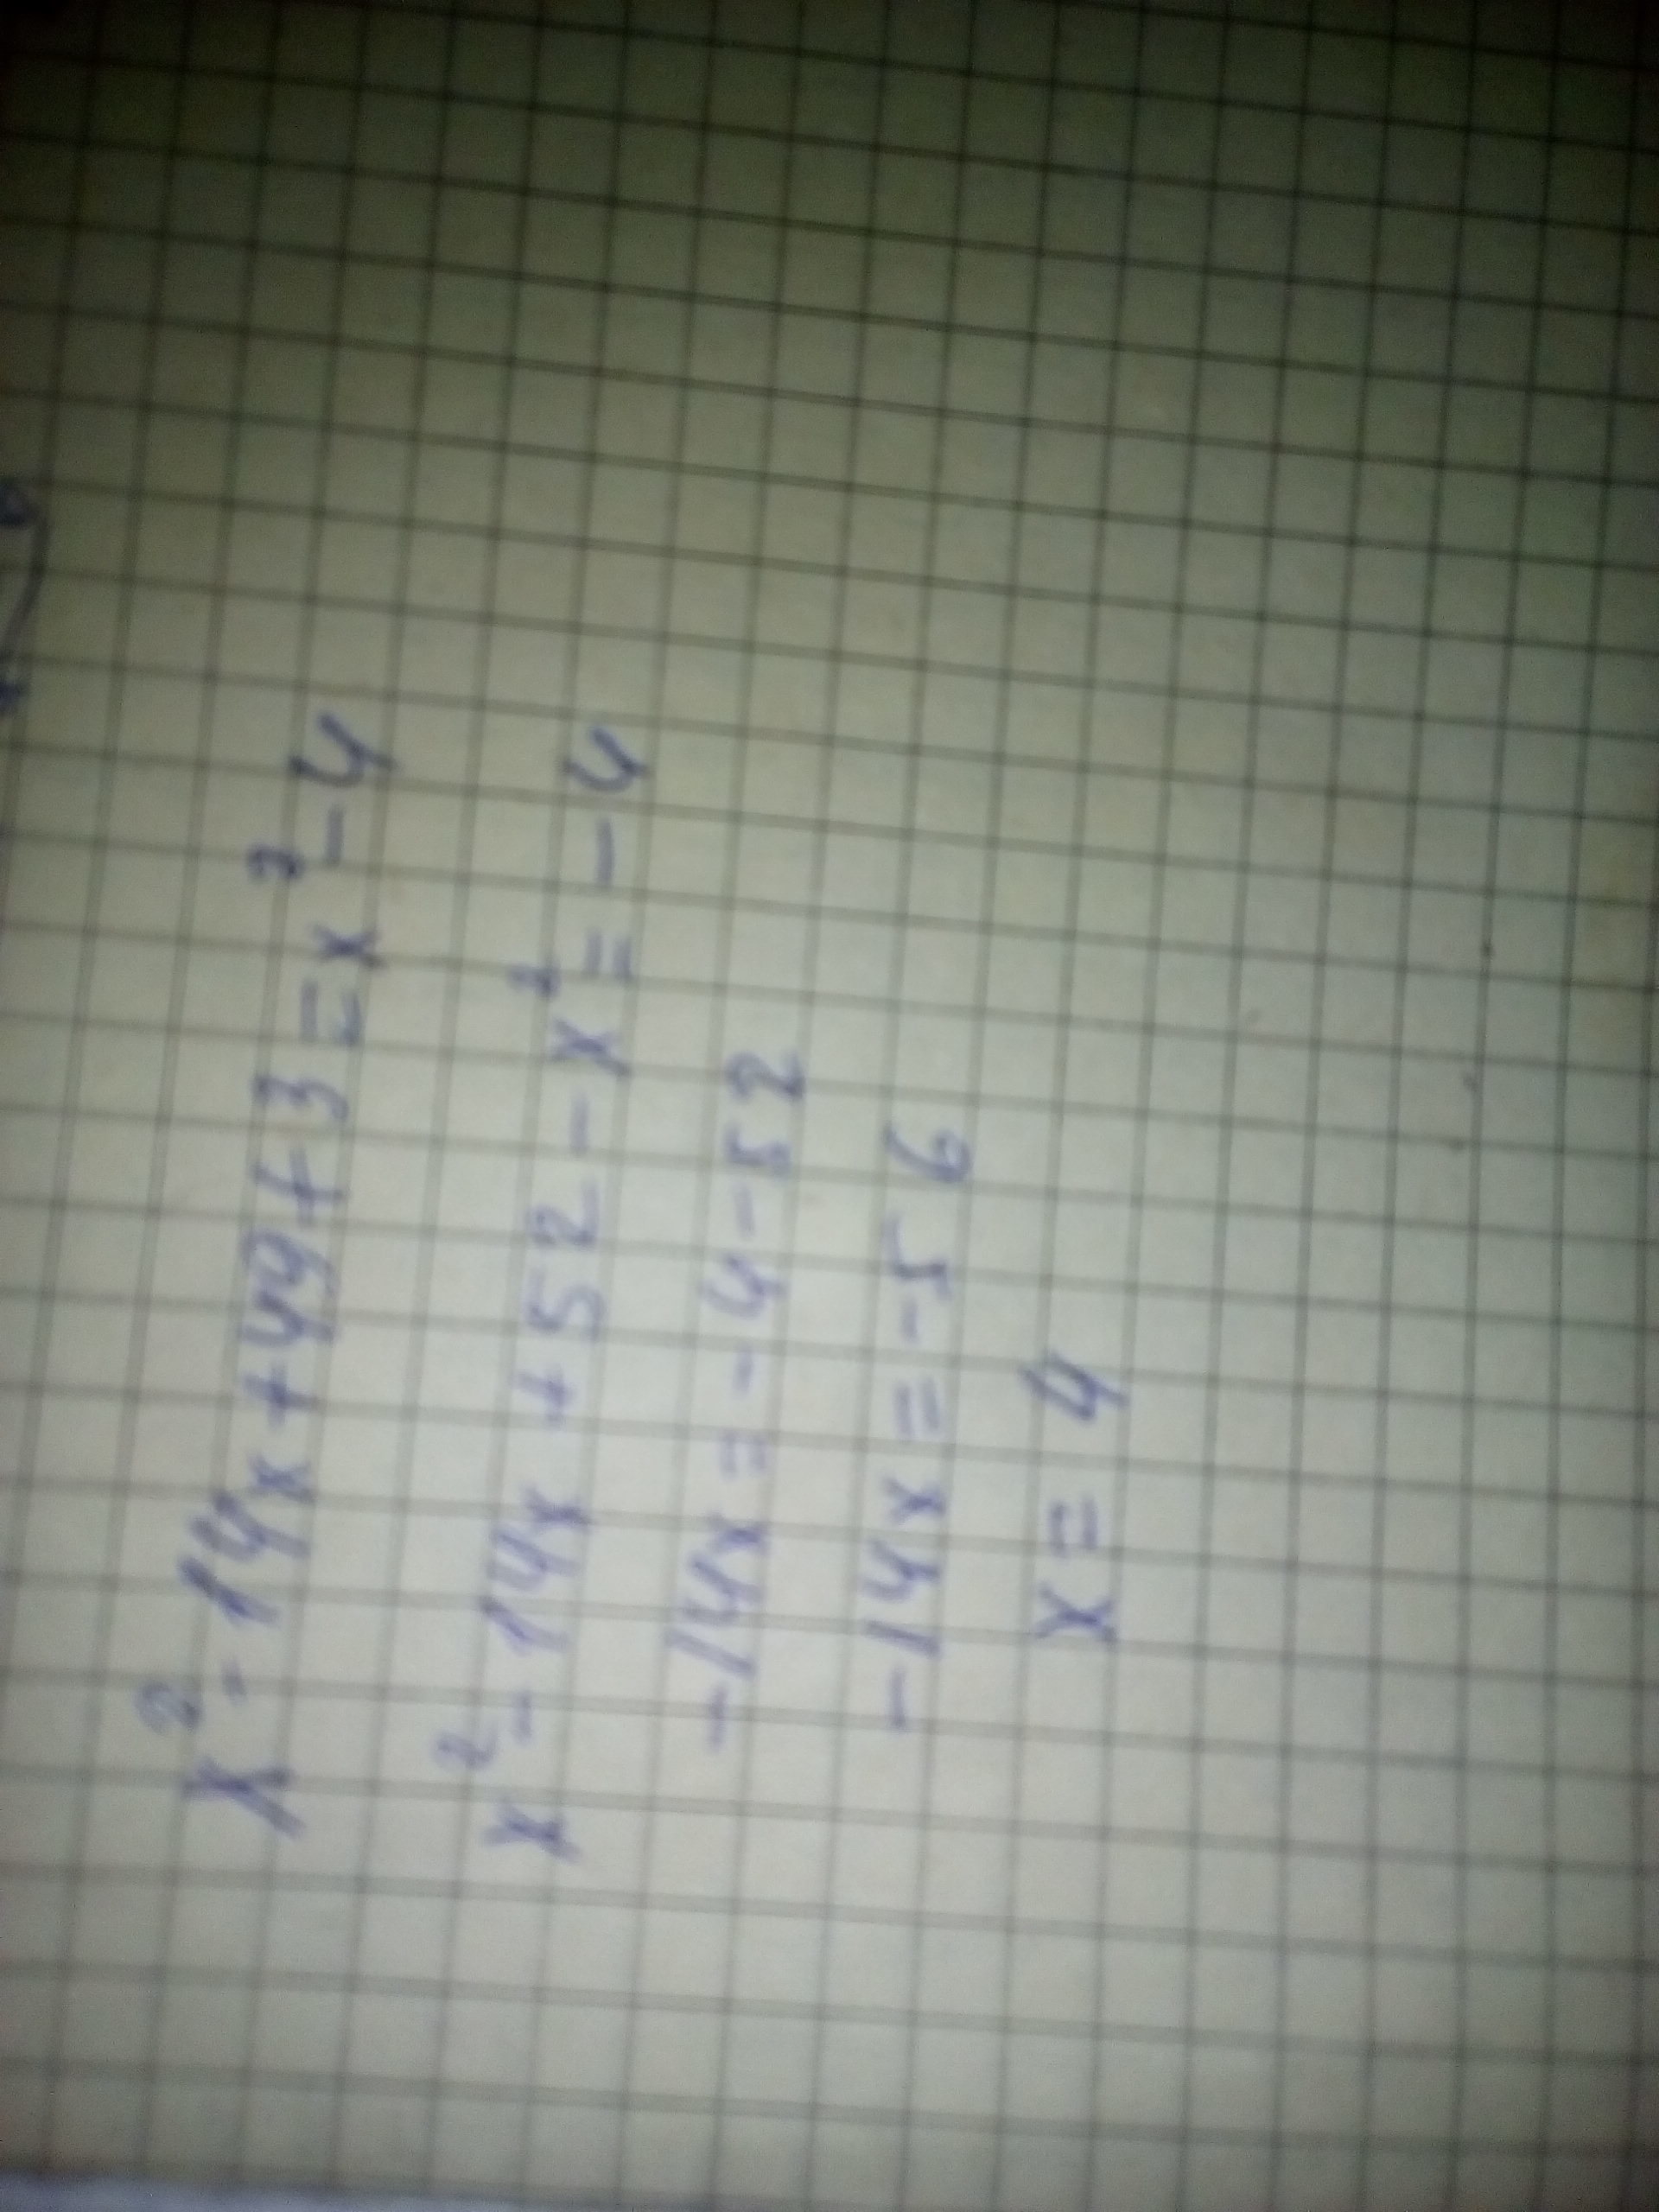 x² - 14x + 49 + 3 = x² - 4
x² - 14x + 52 - x² = - 4
- 14x = - 4 - 52
- 14x = - 56
x = 4